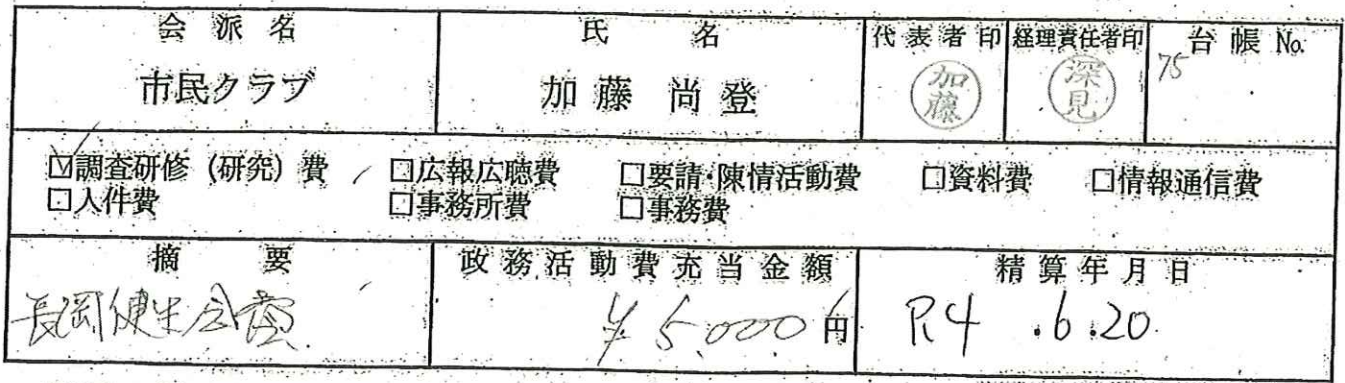 会派名 氏名 代表者印 経理責任者印 台帳 No.
市民クラブ 加藤尚登 加藤 深見 75
☑調査研修(研究)費 □広報広聴費 □要請・陳情活動費 □資料費 □情報通信費
□人件費 □事務所費 □事務費
摘要 政務活動費充当金額 精算年月日
長岡健生会費 ¥5,000円 R4.6.20